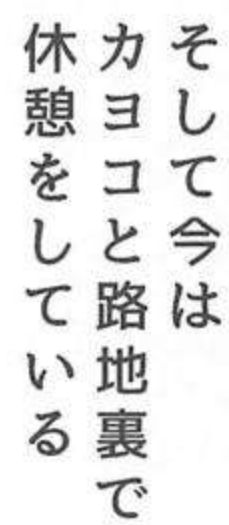 そして今は
カヨコと路地裏で
休憩をしている